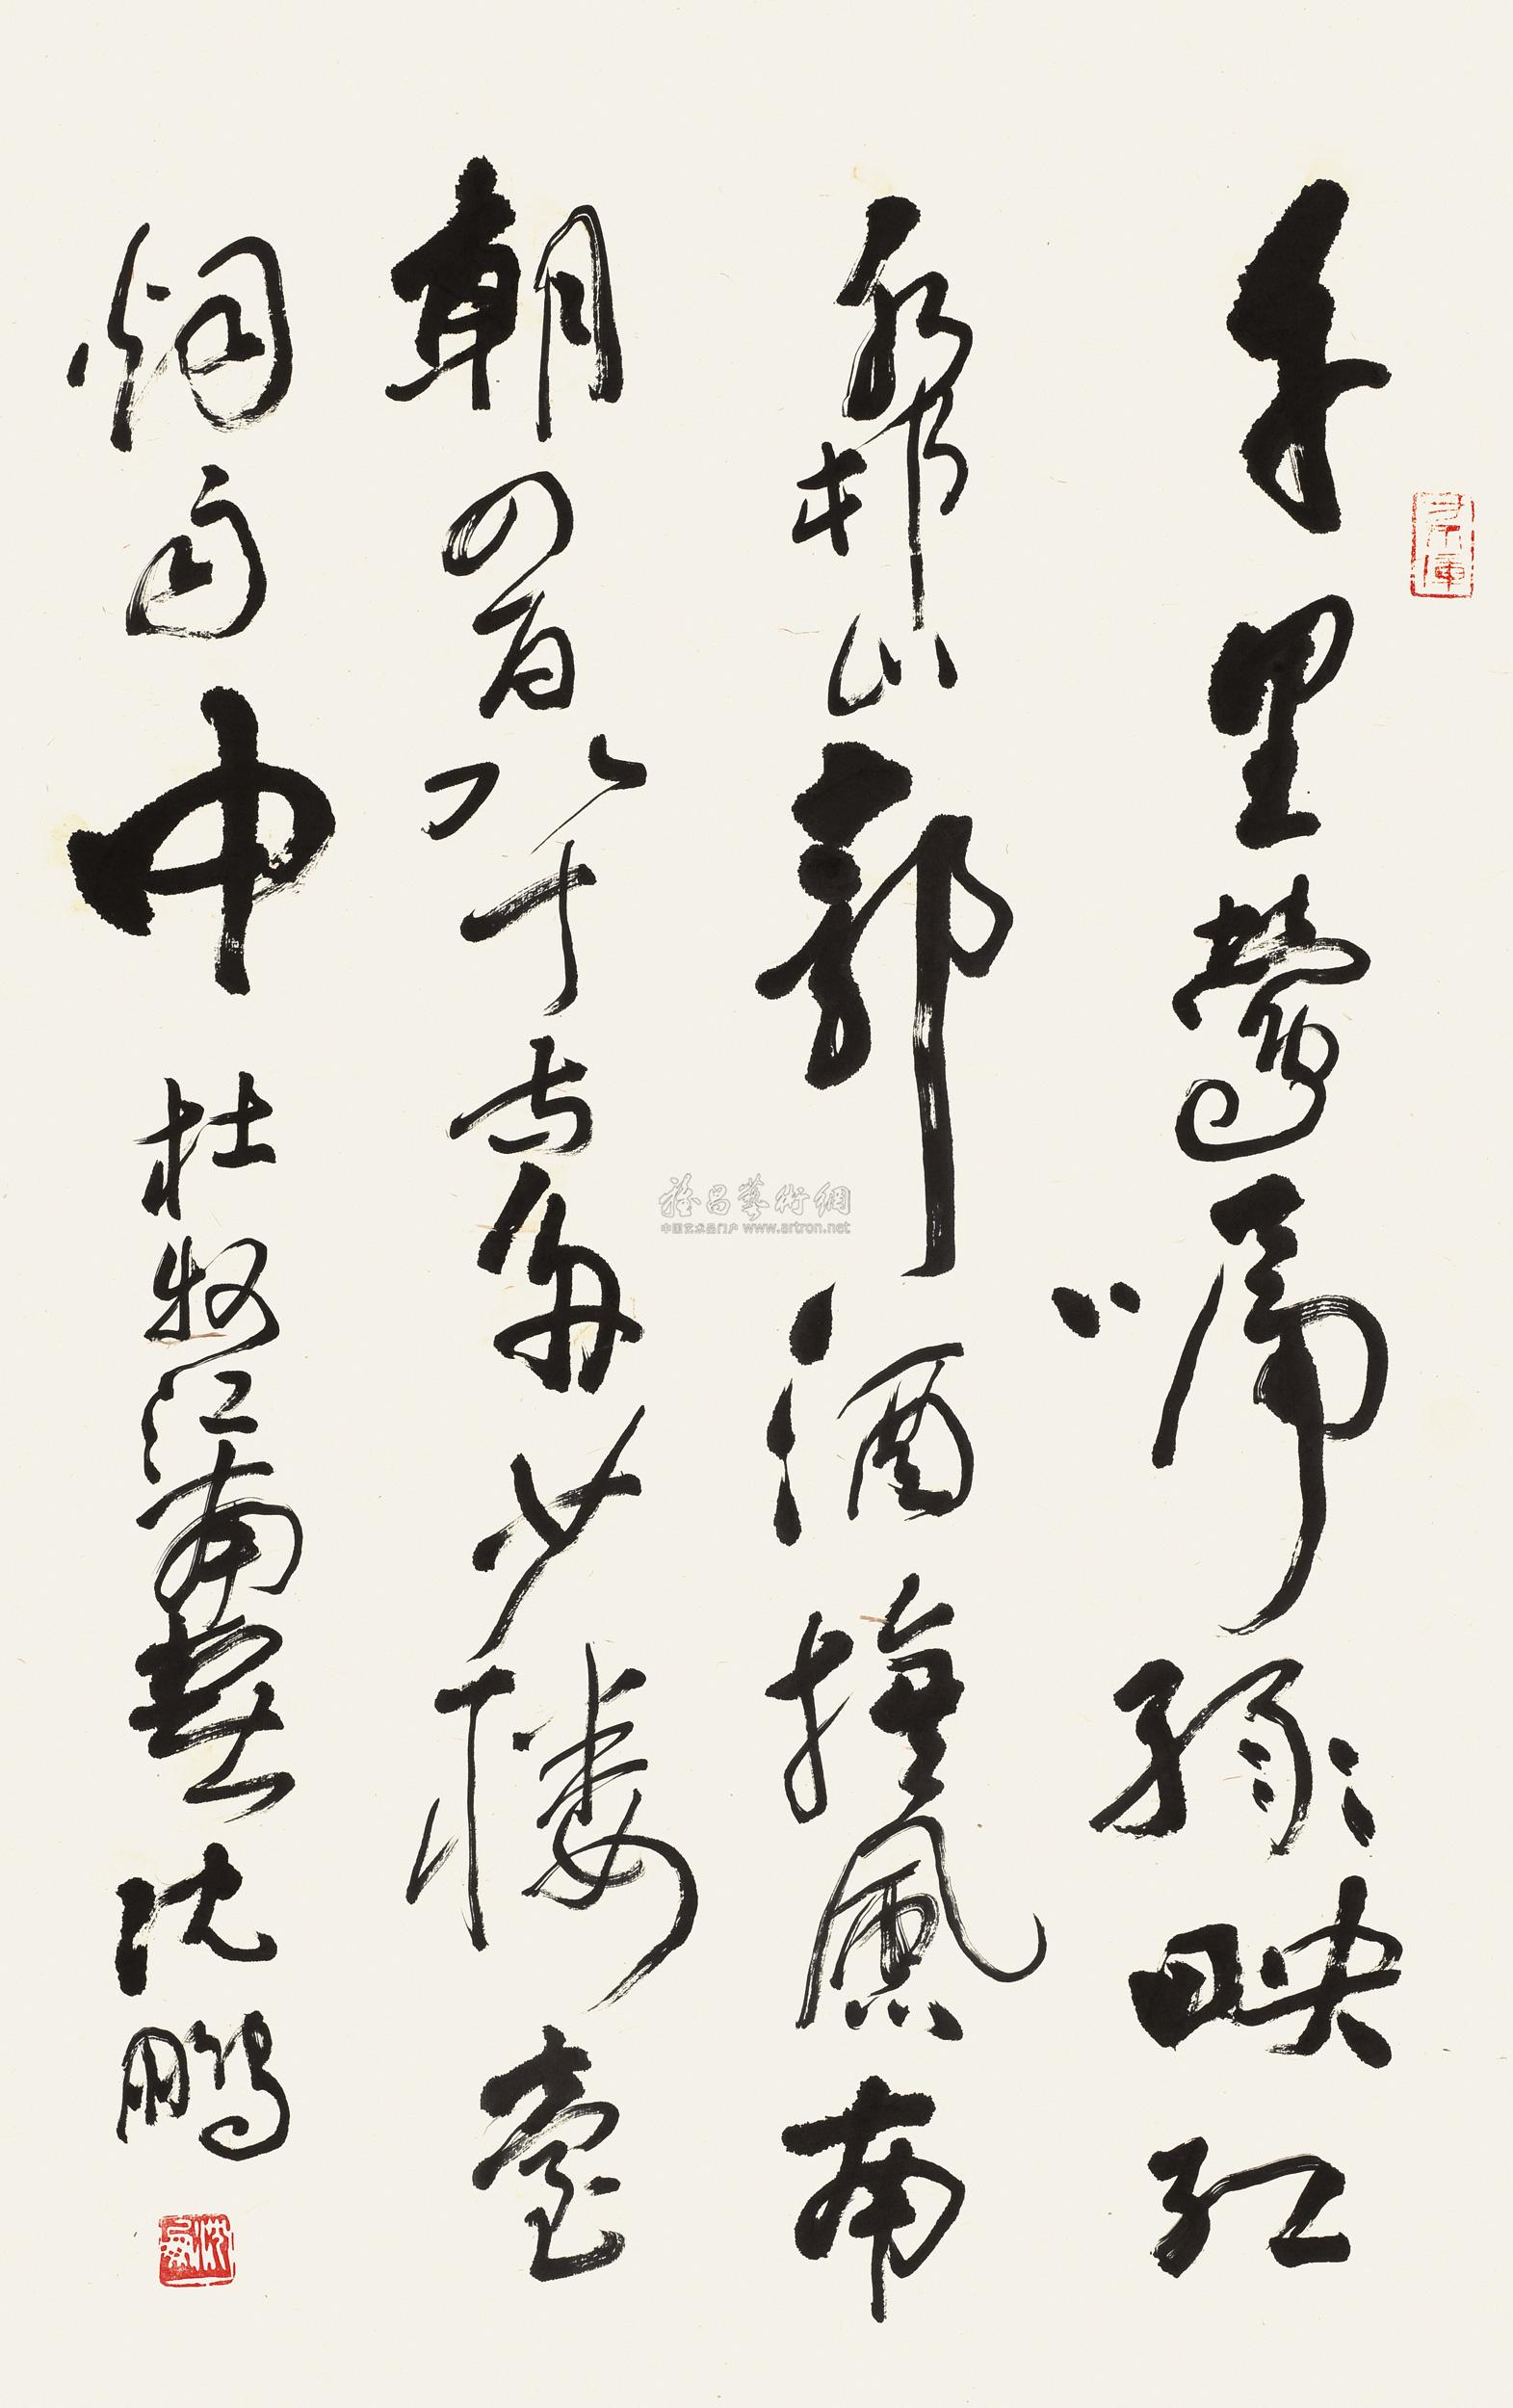 千里鶯啼綠映紅
水村山郭酒旗風南
朝四百八十寺多少樓臺
烟雨中 杜牧江南春 沈鵬
雅昌藝術網
中国艺术品门户 www.artron.net